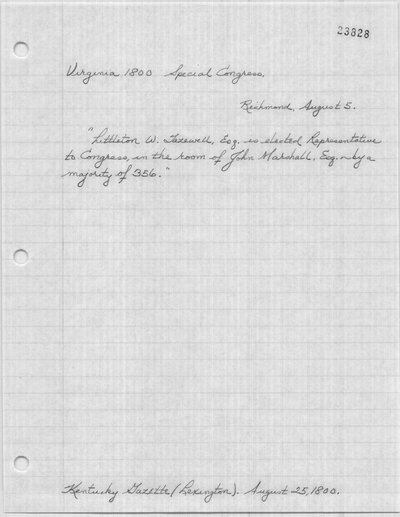 23828
Virginia 1800 Special Congress.
Richmond, August 5.
"Littleton W. Tazewell, Esq. is elected Representative
to Congress, in the room of John Marshall, Esq. - by a
majority of 356."
Kentucky Gazette (Lexington). August 25, 1800.